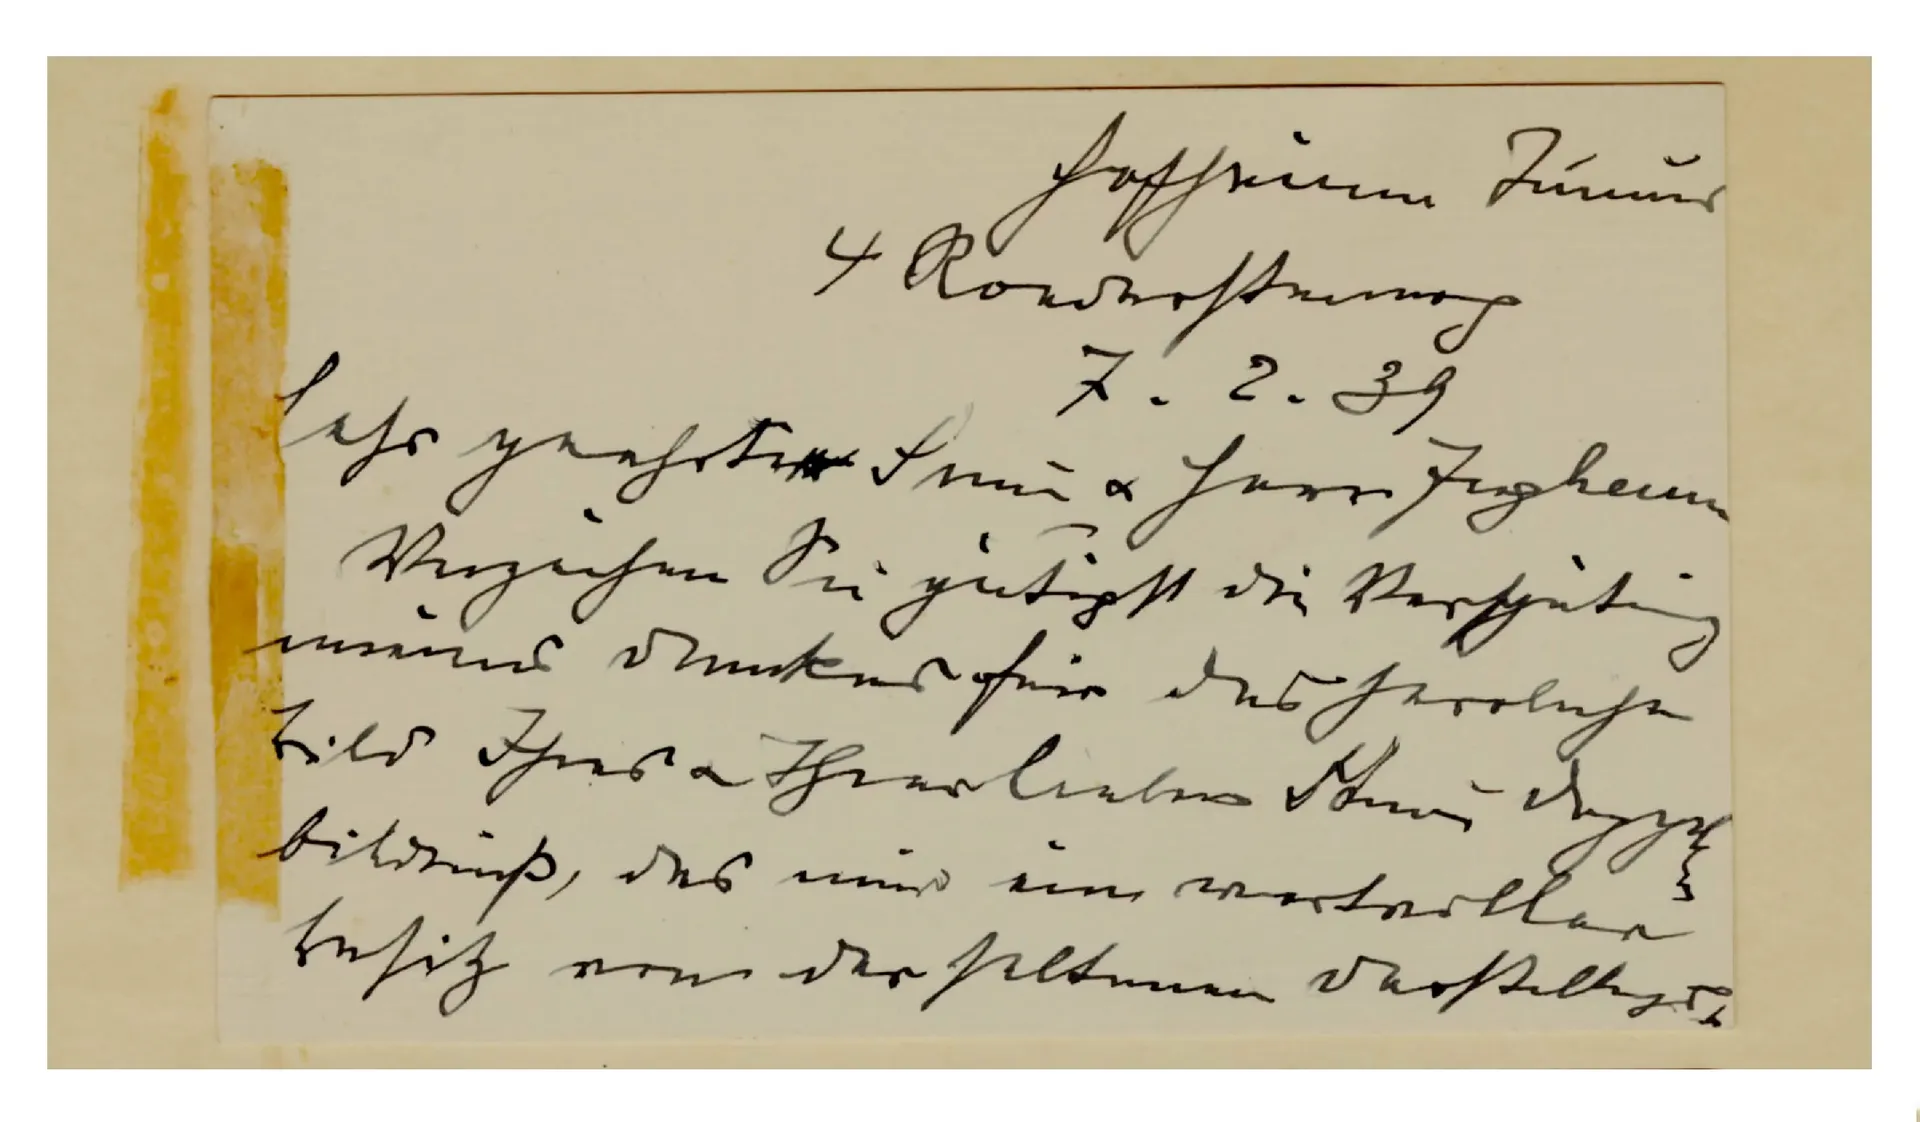 Hofheim Taunus
4 Roedersteinweg
7. 2. 39
Sehr geehrte Frau & Herr Ingheim
Verzeihen Sie gütigst die Verspätung
meines Dankes für das herrliche
Bild Ihres & Ihrer lieben Frau Doppel
bildniß, das mir ein wertvoller
Besitz von der seltenen